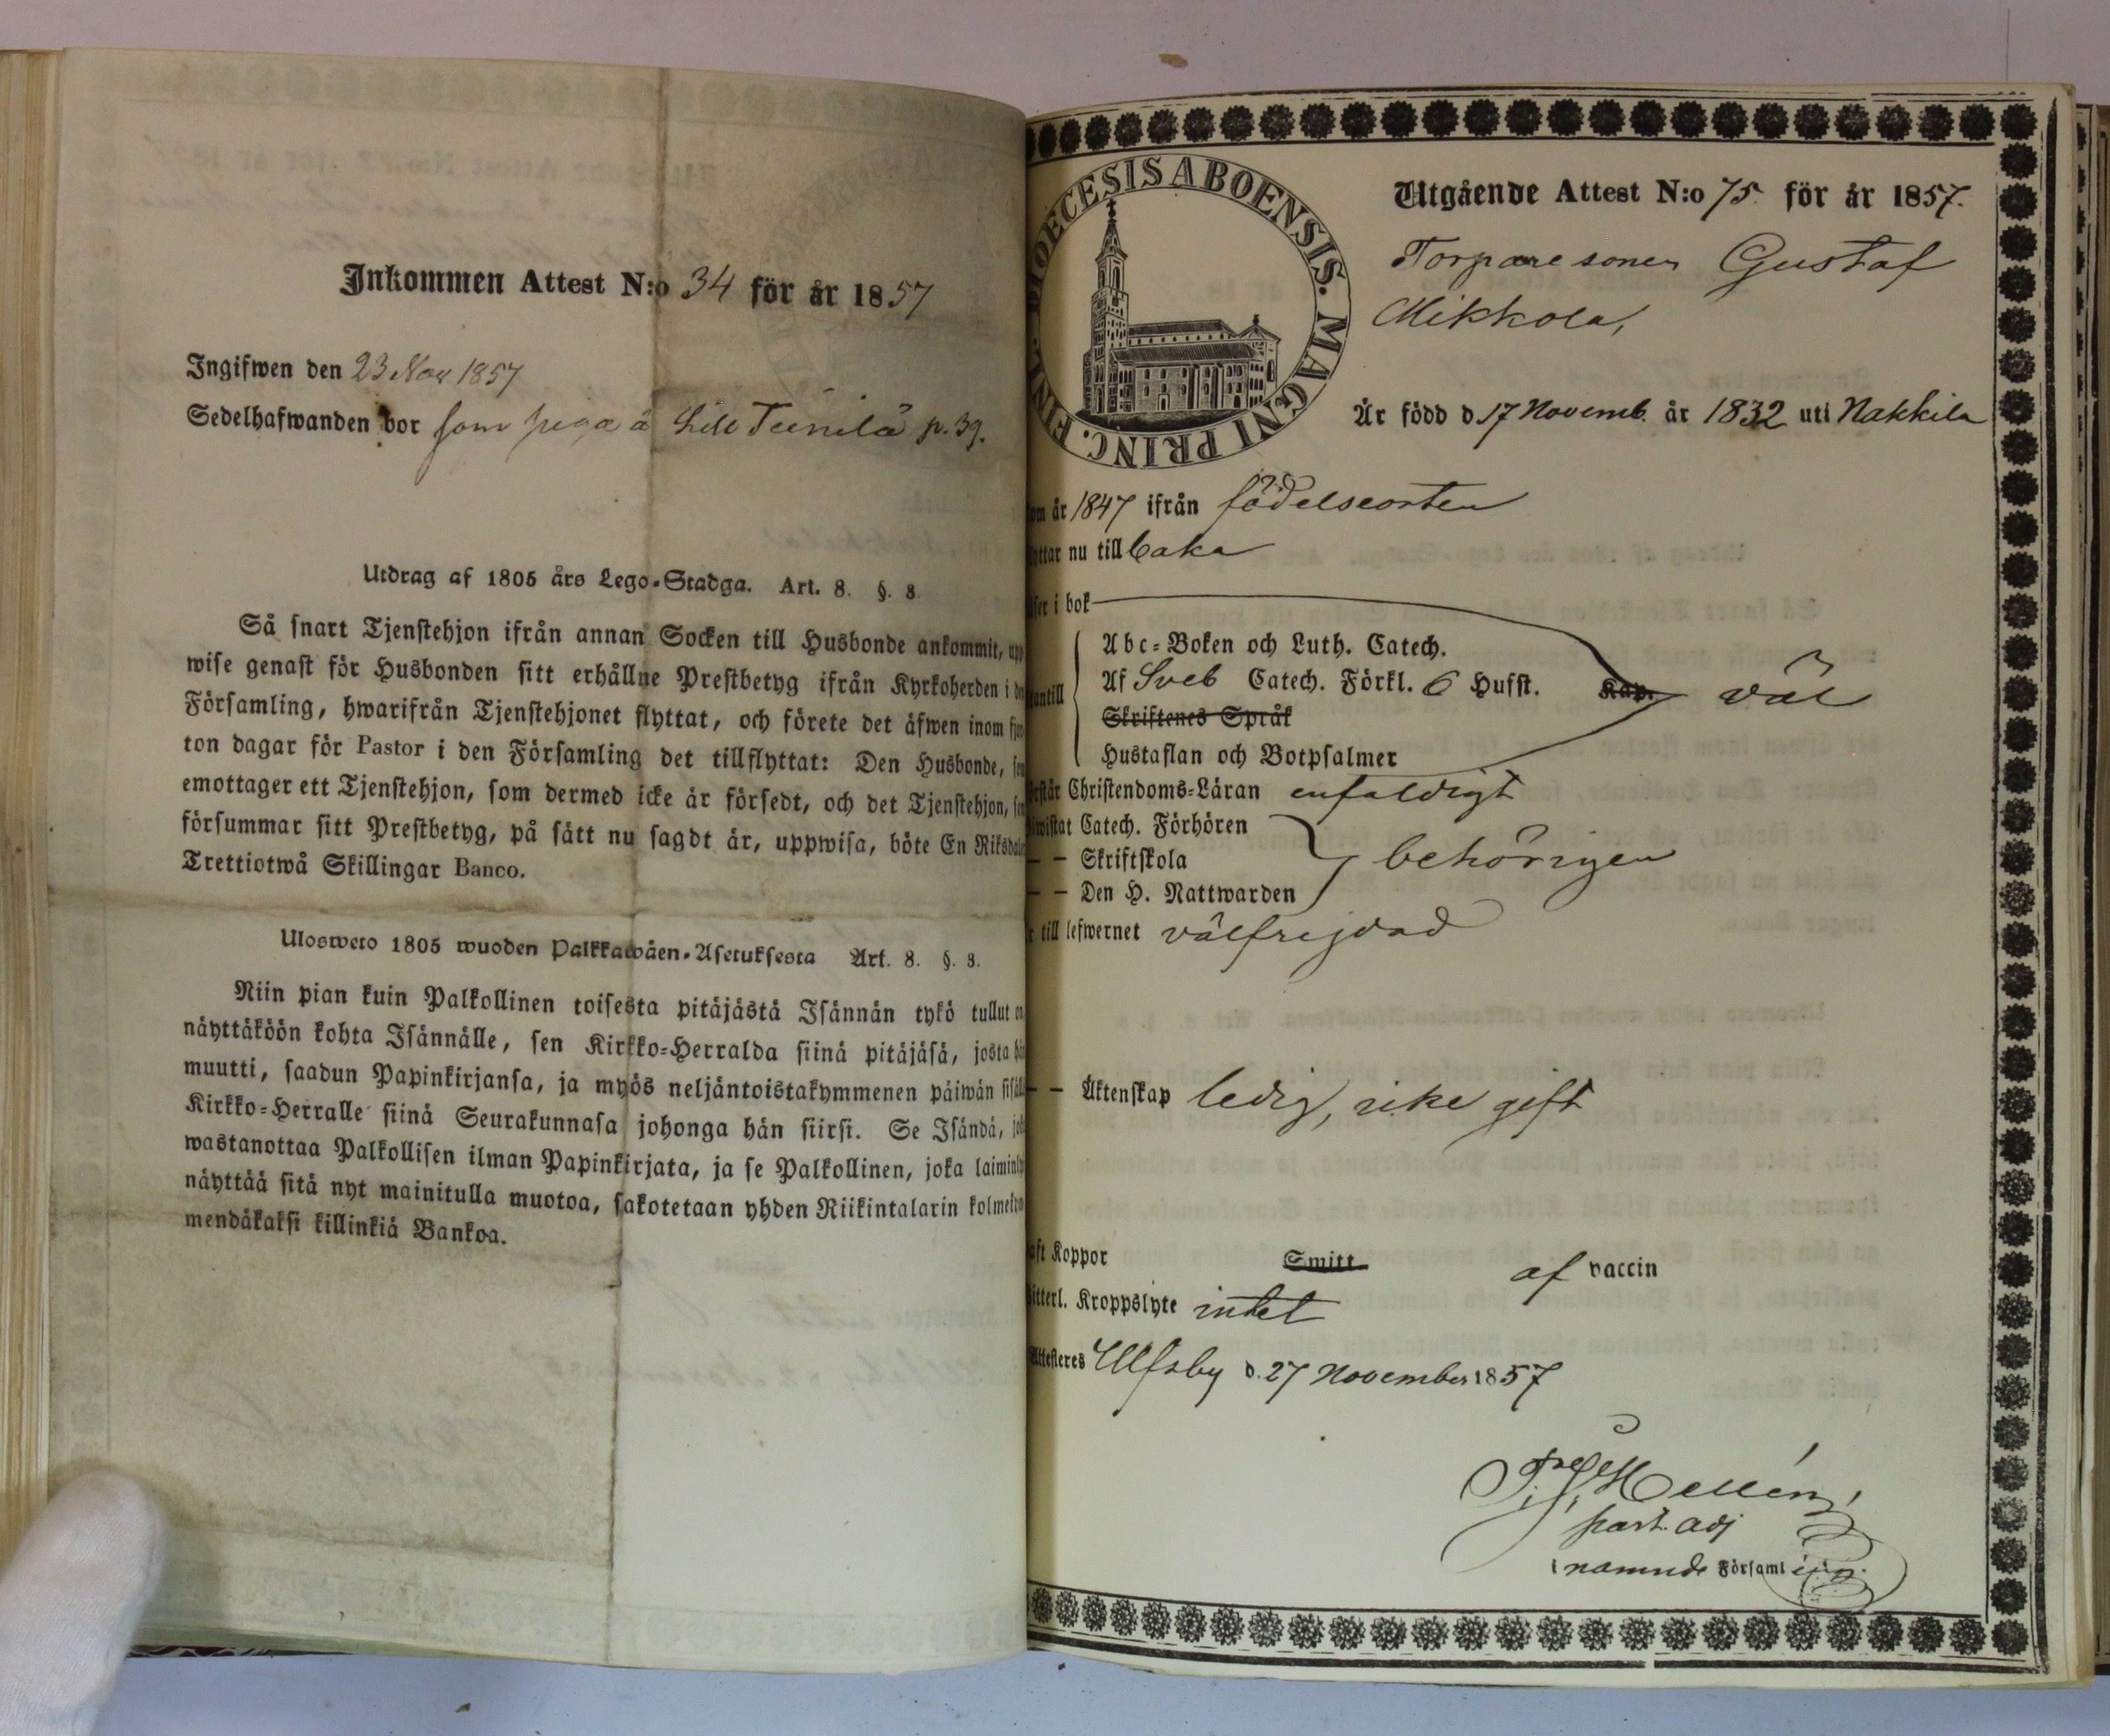 Inkommen Attest N:o 34 för år 1857
Ingifwen den 23 Nov 1857
Sedelhafwanden bor som piga å Lill Teinilä p. 39.
Utdrag af 1805 års Lego-Stadga. Art. 8. §. 8.
Så snart Tjenstehjon ifrån annan Socken till Husbonde ankommit, upp
wise genast för Husbonden sitt erhållne Prestbetyg ifrån Kyrkoherden i den
Församling, hwarifrån Tjenstehjonet flyttat, och förete det äfwen inom fjor
ton dagar för Pastor i den Församling det tillflyttat: Den Husbonde, som
emottager ett Tjenstehjon, som dermed icke är försedt, och det Tjenstehjon, som
försummar sitt Prestbetyg, på sätt nu sagdt är, uppwisa, böte En Riksdaler
Trettiotwå Skillingar Banco.
Ulosweto 1805 wuoden Palkkawäen-Asetuksesta Art. 8. §. 8.
Niin pian kuin Palkollinen toisesta pitäjästä Isännän tykö tullut on
näyttäköön kohta Isännälle, sen Kirkko-Herralda siinä pitäjäsä, josta hän
muutti, saadun Papinkirjansa, ja myös neljäntoistakymmenen päiwän sisällä
Kirkko-Herralle siinä Seurakunnasa johonga hän siirsi. Se Isändä, joka
wastanottaa Palkollisen ilman Papinkirjata, ja se Palkollinen, joka laiminly
näyttää sitä nyt mainitulla muotoa, sakotetaan yhden Riikintalarin kolmekym
mendäkaksi killinkiä Bankoa.
DIOECESIS ABOENSIS. MAGNI PRINC. FINL.
Utgående Attest N:o 75. för år 1857.
Torparesonen Gustaf
Mikkola,
Är född d 17 Novemb. år 1832 uti Nakkila
om år 1847 ifrån födelseorten
yttar nu till baka
äser i bok
Abc-Boken och Luth. Catech.
Af Sveb Catech. Förkl. 6 Hufst. Kap. väl
antill
Skriftenes Språk
Hustaflan och Botpsalmer
rstår Christendoms-Läran enfaldigt
wistat Catech. Förhören
— — Skriftskola behörigen
— — Den H. Nattwarden
r till lefwernet välfrejdad
— — Äktenskap ledig, icke gift
aft Koppor Smitt af vaccin
itterl. Kroppslyte intet
Attesteres Ulfsby d. 27 November 1857
Hellén,
past. adj
i namnde Församling.